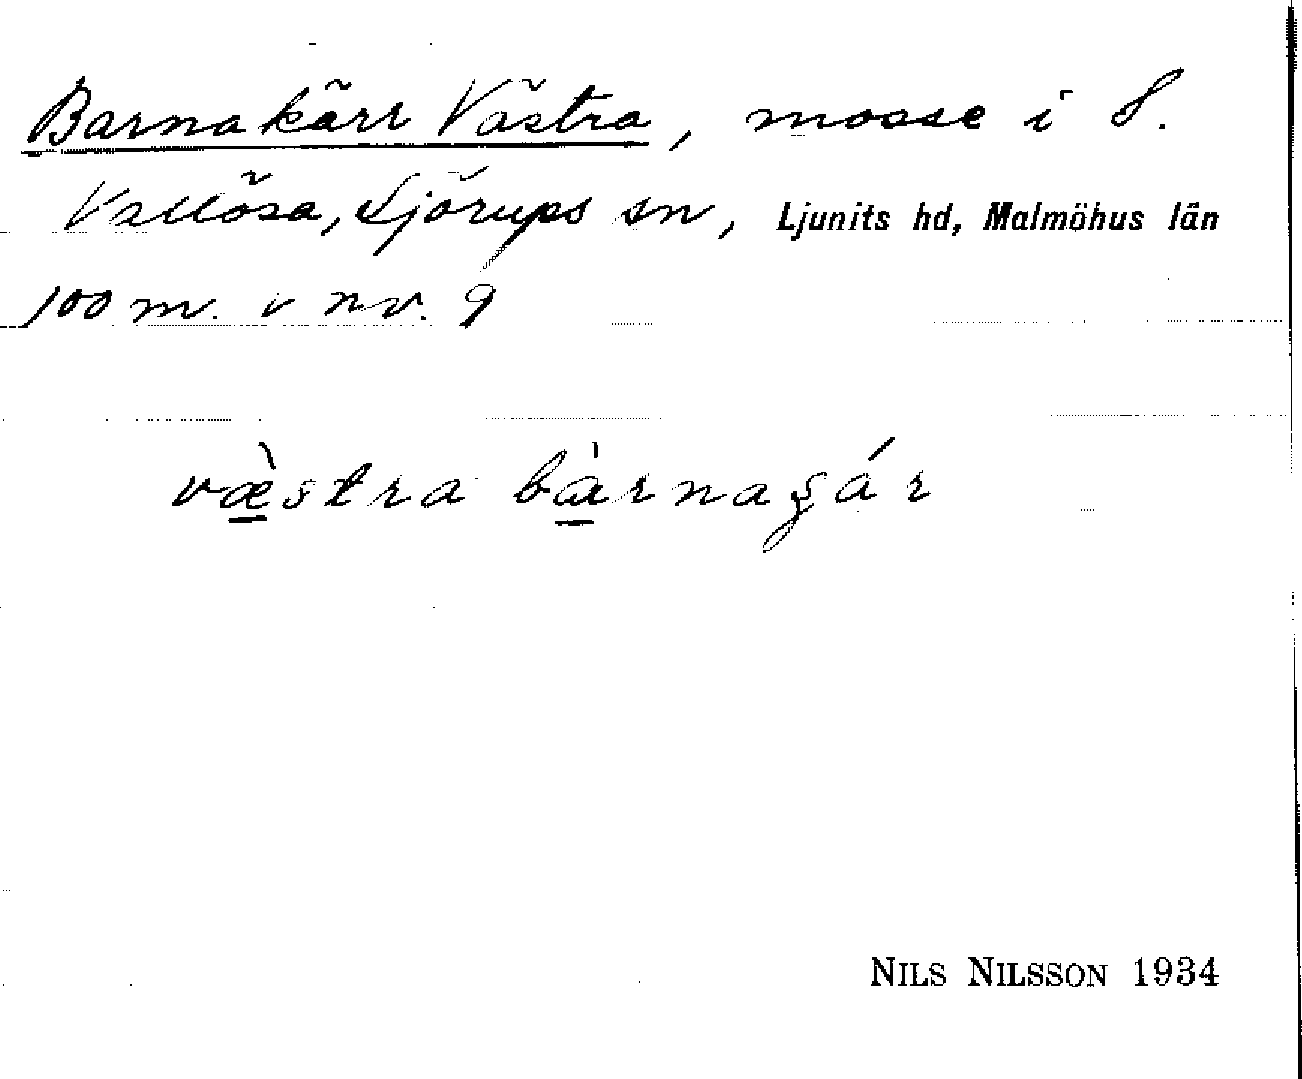 Barnakärr Västra, mosse i S.
Vallösa, Sjörups sn, Ljunits hd, Malmöhus län
100 m. v nv. 9
væ̀stra bàrnagár
NILS NILSSON 1934